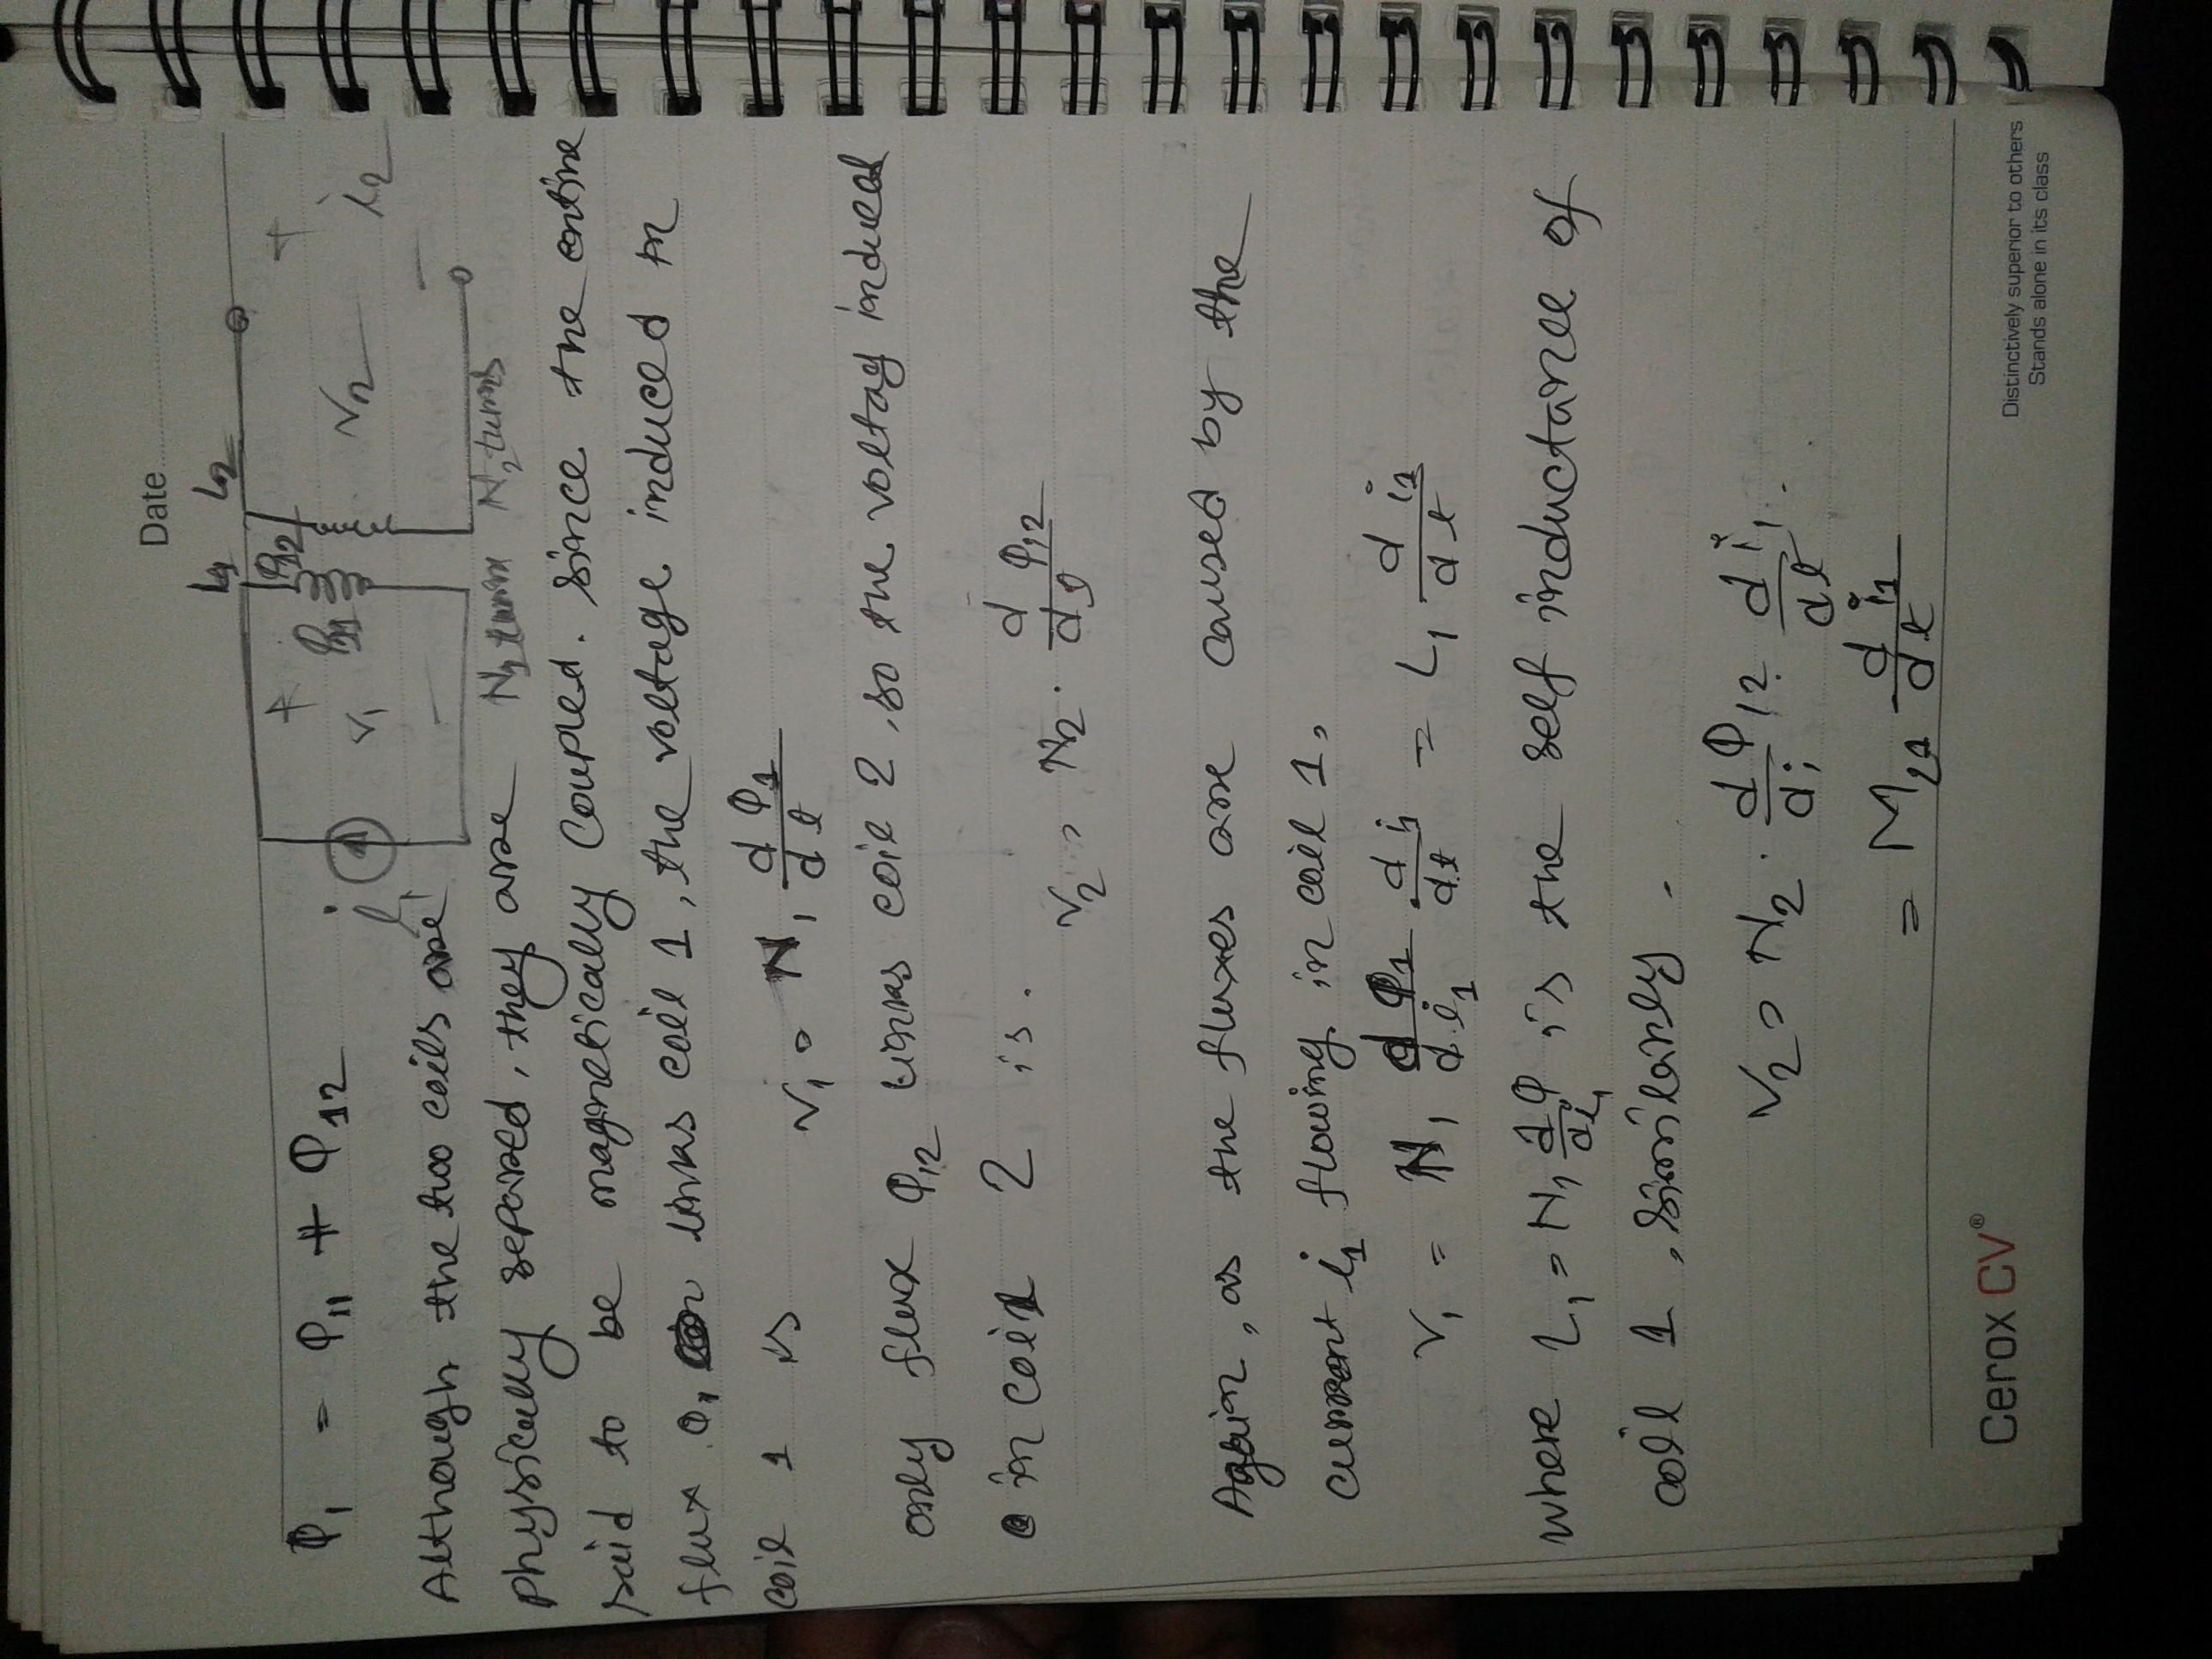 Date
L1 L2
Φ₁ = Φ₁₁ + Φ₁₂
i₁ + v₁ − Φ11 Φ12 + v2 − i2
Although the two coils are
N1 turns N2 turns
physically separed, they are
said to be magnetically coupled. Since the entire
flux Φ₁ links coil 1, the voltage induced in
coil 1 is v₁ = N₁ dΦ1/dt
only flux Φ12 links coil 2, so the voltag induced
in coil 2 is.
v2 = N2 · dΦ12/dt
Again, as the fluxes are caused by the
current i1 flowing in coil 1,
v₁ = N₁ dΦ1/di1 di1/dt = L₁ di1/dt
where L₁ = N₁ dΦ/di₁ is the self inductance of
coil 1, similarly.
V2 = N2 · dΦ12/di di₁/dt.
= M21 di1/dt
Cerox CV®
Distinctively superior to others
Stands alone in its class